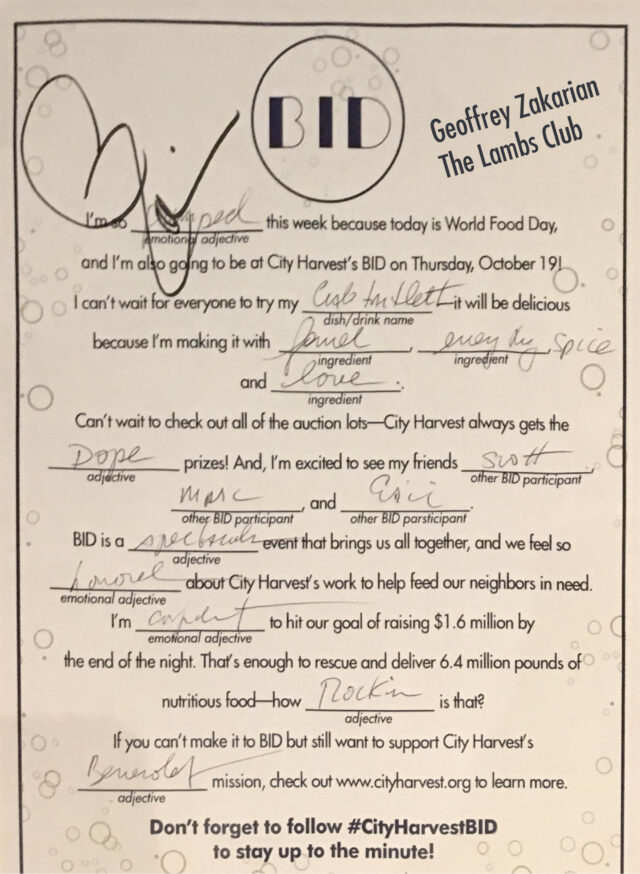 BID
Geoffrey Zakarian
The Lambs Club
I'm so pumped this week because today is World Food Day,
emotional adjective
and I'm also going to be at City Harvest's BID on Thursday, October 19!
I can't wait for everyone to try my it will be delicious
dish/drink name
because I'm making it with , spice
ingredient ingredient
and love.
ingredient
Can't wait to check out all of the auction lots—City Harvest always gets the
Dope prizes! And, I'm excited to see my friends Scott,
adjective other BID participant
Marc, and Eric.
other BID participant other BID parsticipant
BID is a spectacular event that brings us all together, and we feel so
adjective
honored about City Harvest's work to help feed our neighbors in need.
emotional adjective
I'm confident to hit our goal of raising $1.6 million by
emotional adjective
the end of the night. That's enough to rescue and deliver 6.4 million pounds of
nutritious food—how Rockin is that?
adjective
If you can't make it to BID but still want to support City Harvest's
Benevolet mission, check out www.cityharvest.org to learn more.
adjective
Don't forget to follow #CityHarvestBID
to stay up to the minute!